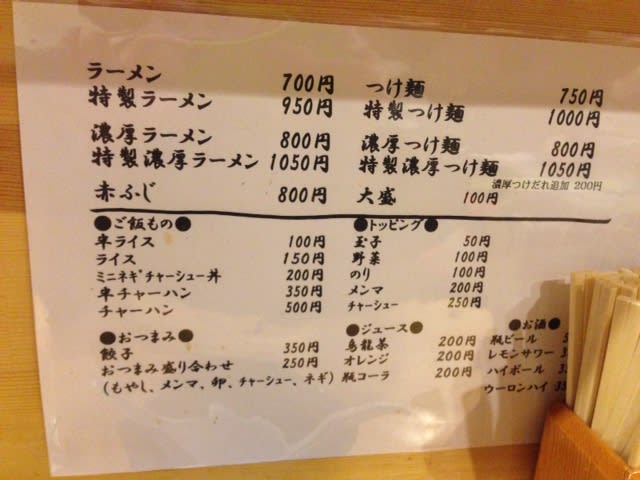 ラーメン 700円
特製ラーメン 950円
濃厚ラーメン 800円
特製濃厚ラーメン 1050円
赤ふじ 800円
つけ麺 750円
特製つけ麺 1000円
濃厚つけ麺 800円
特製濃厚つけ麺 1050円
濃厚つけだれ追加 200円
大盛 100円
●ご飯もの●
半ライス 100円
ライス 150円
ミニネギチャーシュー丼 200円
半チャーハン 350円
チャーハン 500円
●トッピング●
玉子 50円
野菜 100円
のり 100円
メンマ 200円
チャーシュー 250円
●おつまみ●
餃子 350円
おつまみ盛り合わせ 250円
(もやし、メンマ、卵、チャーシュー、ネギ)
●ジュース●
烏龍茶 200円
オレンジ 200円
瓶コーラ 200円
●お酒●
瓶ビール
レモンサワー
ハイボール
ウーロンハイ